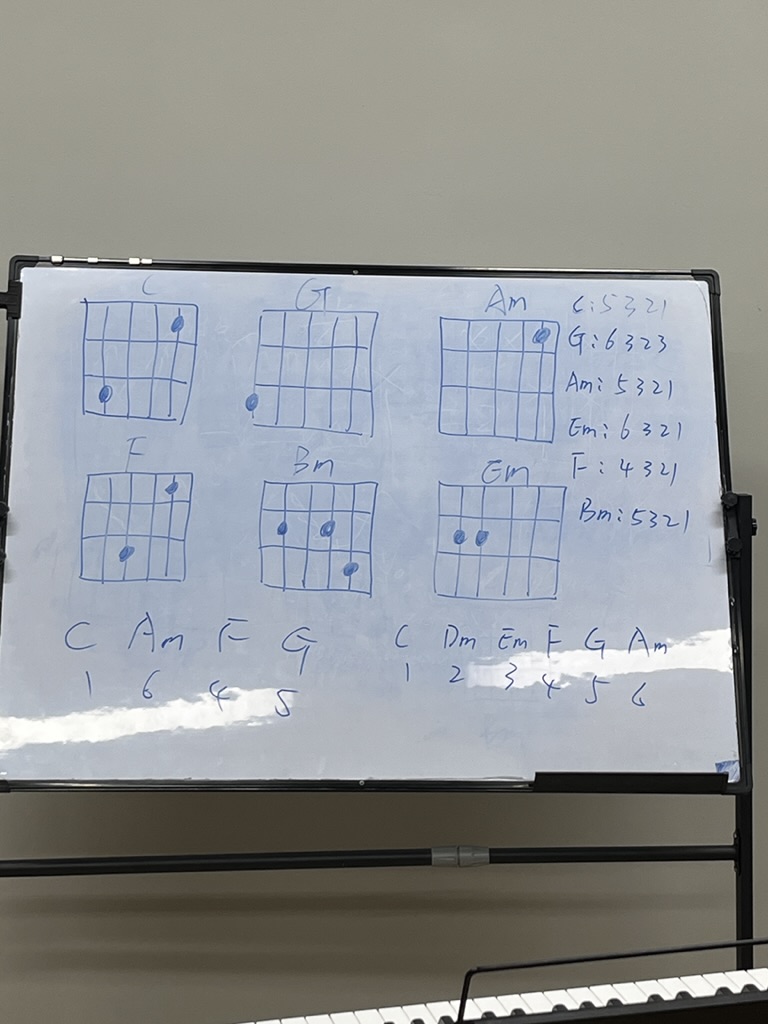 C G Am
F Bm Em
C: 5 3 2 1
G: 6 3 2 3
Am: 5 3 2 1
Em: 6 3 2 1
F: 4 3 2 1
Bm: 5 3 2 1
C Am F G
1 6 4 5
C Dm Em F G Am
1 2 3 4 5 6